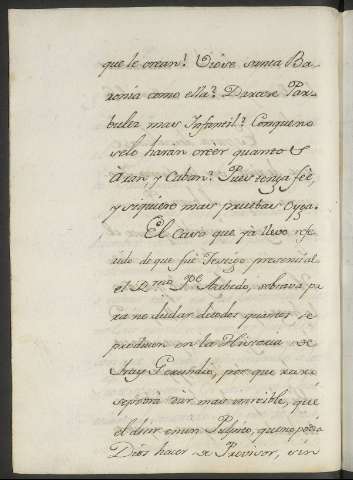 que le crean? Viose santa Ba-
xonia como ella? Darcese Par-
bulez mas Infantil? Conque no
selo harán creer quanto
Axon, y Caban? Pues tenga feè,
y si quiere mas pruebas Oyga.
El Caso que ya llevo refe-
rido de que fuè Testigo presencial
el R.mo P.e Azebedo, sobrava pa-
ra no dudar de todos quantos se
predican en la Historia de
Fray Gerundio, por que xaxa
se podrà dar mas increible, que
el decir en un Pulpito, que no podia
Dios hacer de Provisor, sin